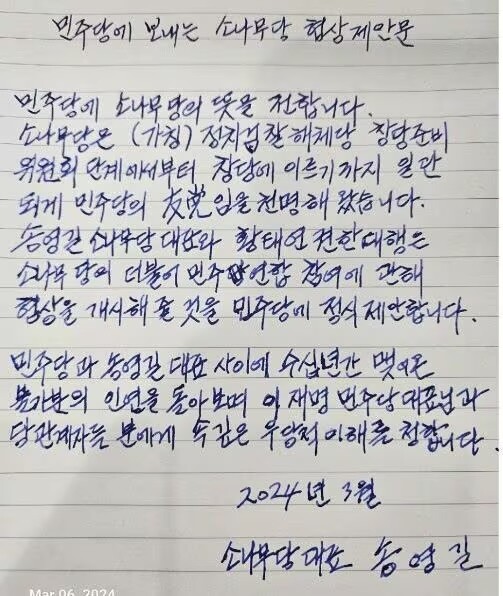 민주당에 보내는 소나무당 협상제안문
민주당에 소나무당의 뜻을 전합니다.
소나무당은 (가칭) 정치검찰해체당 창당준비
위원회 단계에서부터 창당에 이르기까지 일관
되게 민주당의 友党임을 천명해 왔습니다.
송영길 소나무당 대표와 황태연 권한대행은
소나무당의 더불어민주연합 참여에 관해
협상을 개시해 줄 것을 민주당에 정식 제안합니다.
민주당과 송영길 대표 사이에 수십년간 맺어온
불가분의 인연을 돌아보며 이재명 민주당 대표님과
당관계자들 분에게 속 깊은 우당적 이해를 청합니다.
2024년 3월
소나무당대표 송영길
Mar 06, 2024